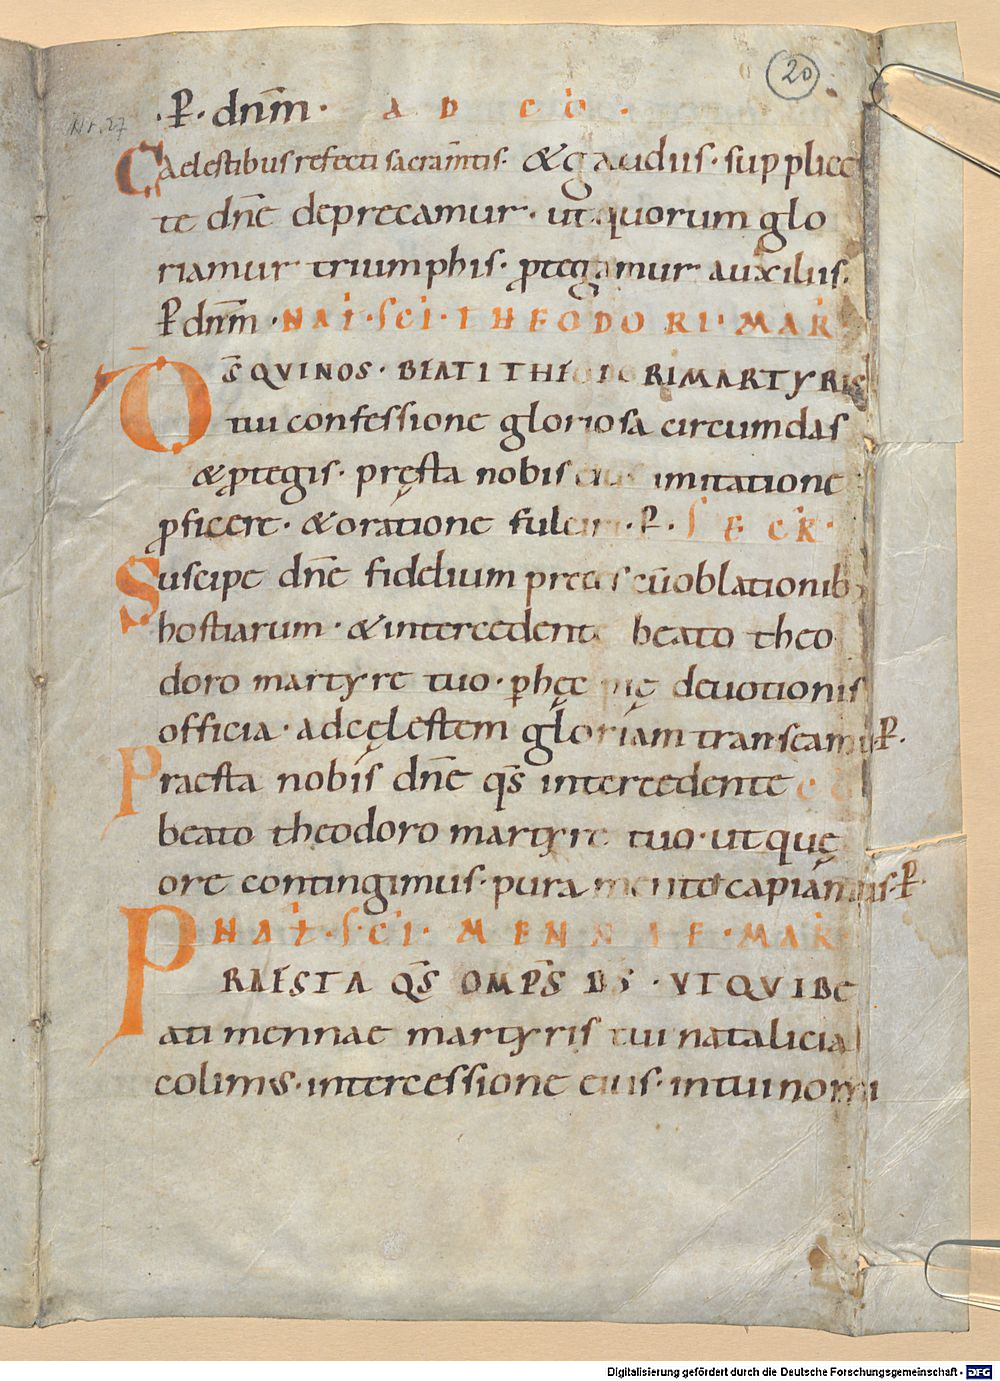 20
Nr. 27
·P· dn̄m · AD CŌ ·
Caelestibus refecti sacram̄tis· & gaudiis· supplice
te dn̄e deprecamur· ut quorum glo
riamur triumphis· ꝓtegamur auxiliis·
P dn̄m · NAT· SCI· THEODORI· MAR
DS̄ QVI NOS· BEATI THEODORI MARTYRIS
tui confessione gloriosa circumdas
& ꝓtegis· pręsta nobis eius imitatione
ꝓficere· & oratione fulciri· P· SECR·
Suscipe dn̄e fidelium preces cū oblationib;
hostiarum· & intercedente beato theo
doro martyre tuo· ꝑ hęc pię deuotionis
officia· ad cęlestem gloriam transeam; P·
Praesta nobis dn̄e qs̄ intercedente
beato theodoro martyre tuo· ut quę
ore contingimus· pura mente capiamus· P·
NAT· SCI· MENNAE· MAR
PRAESTA QS̄ OMP̄S DS̄ · VT QVI BE
ati mennae martyris tui natalicia
colimus· intercessione eius· in tui nomi
Digitalisierung gefördert durch die Deutsche Forschungsgemeinschaft - DFG